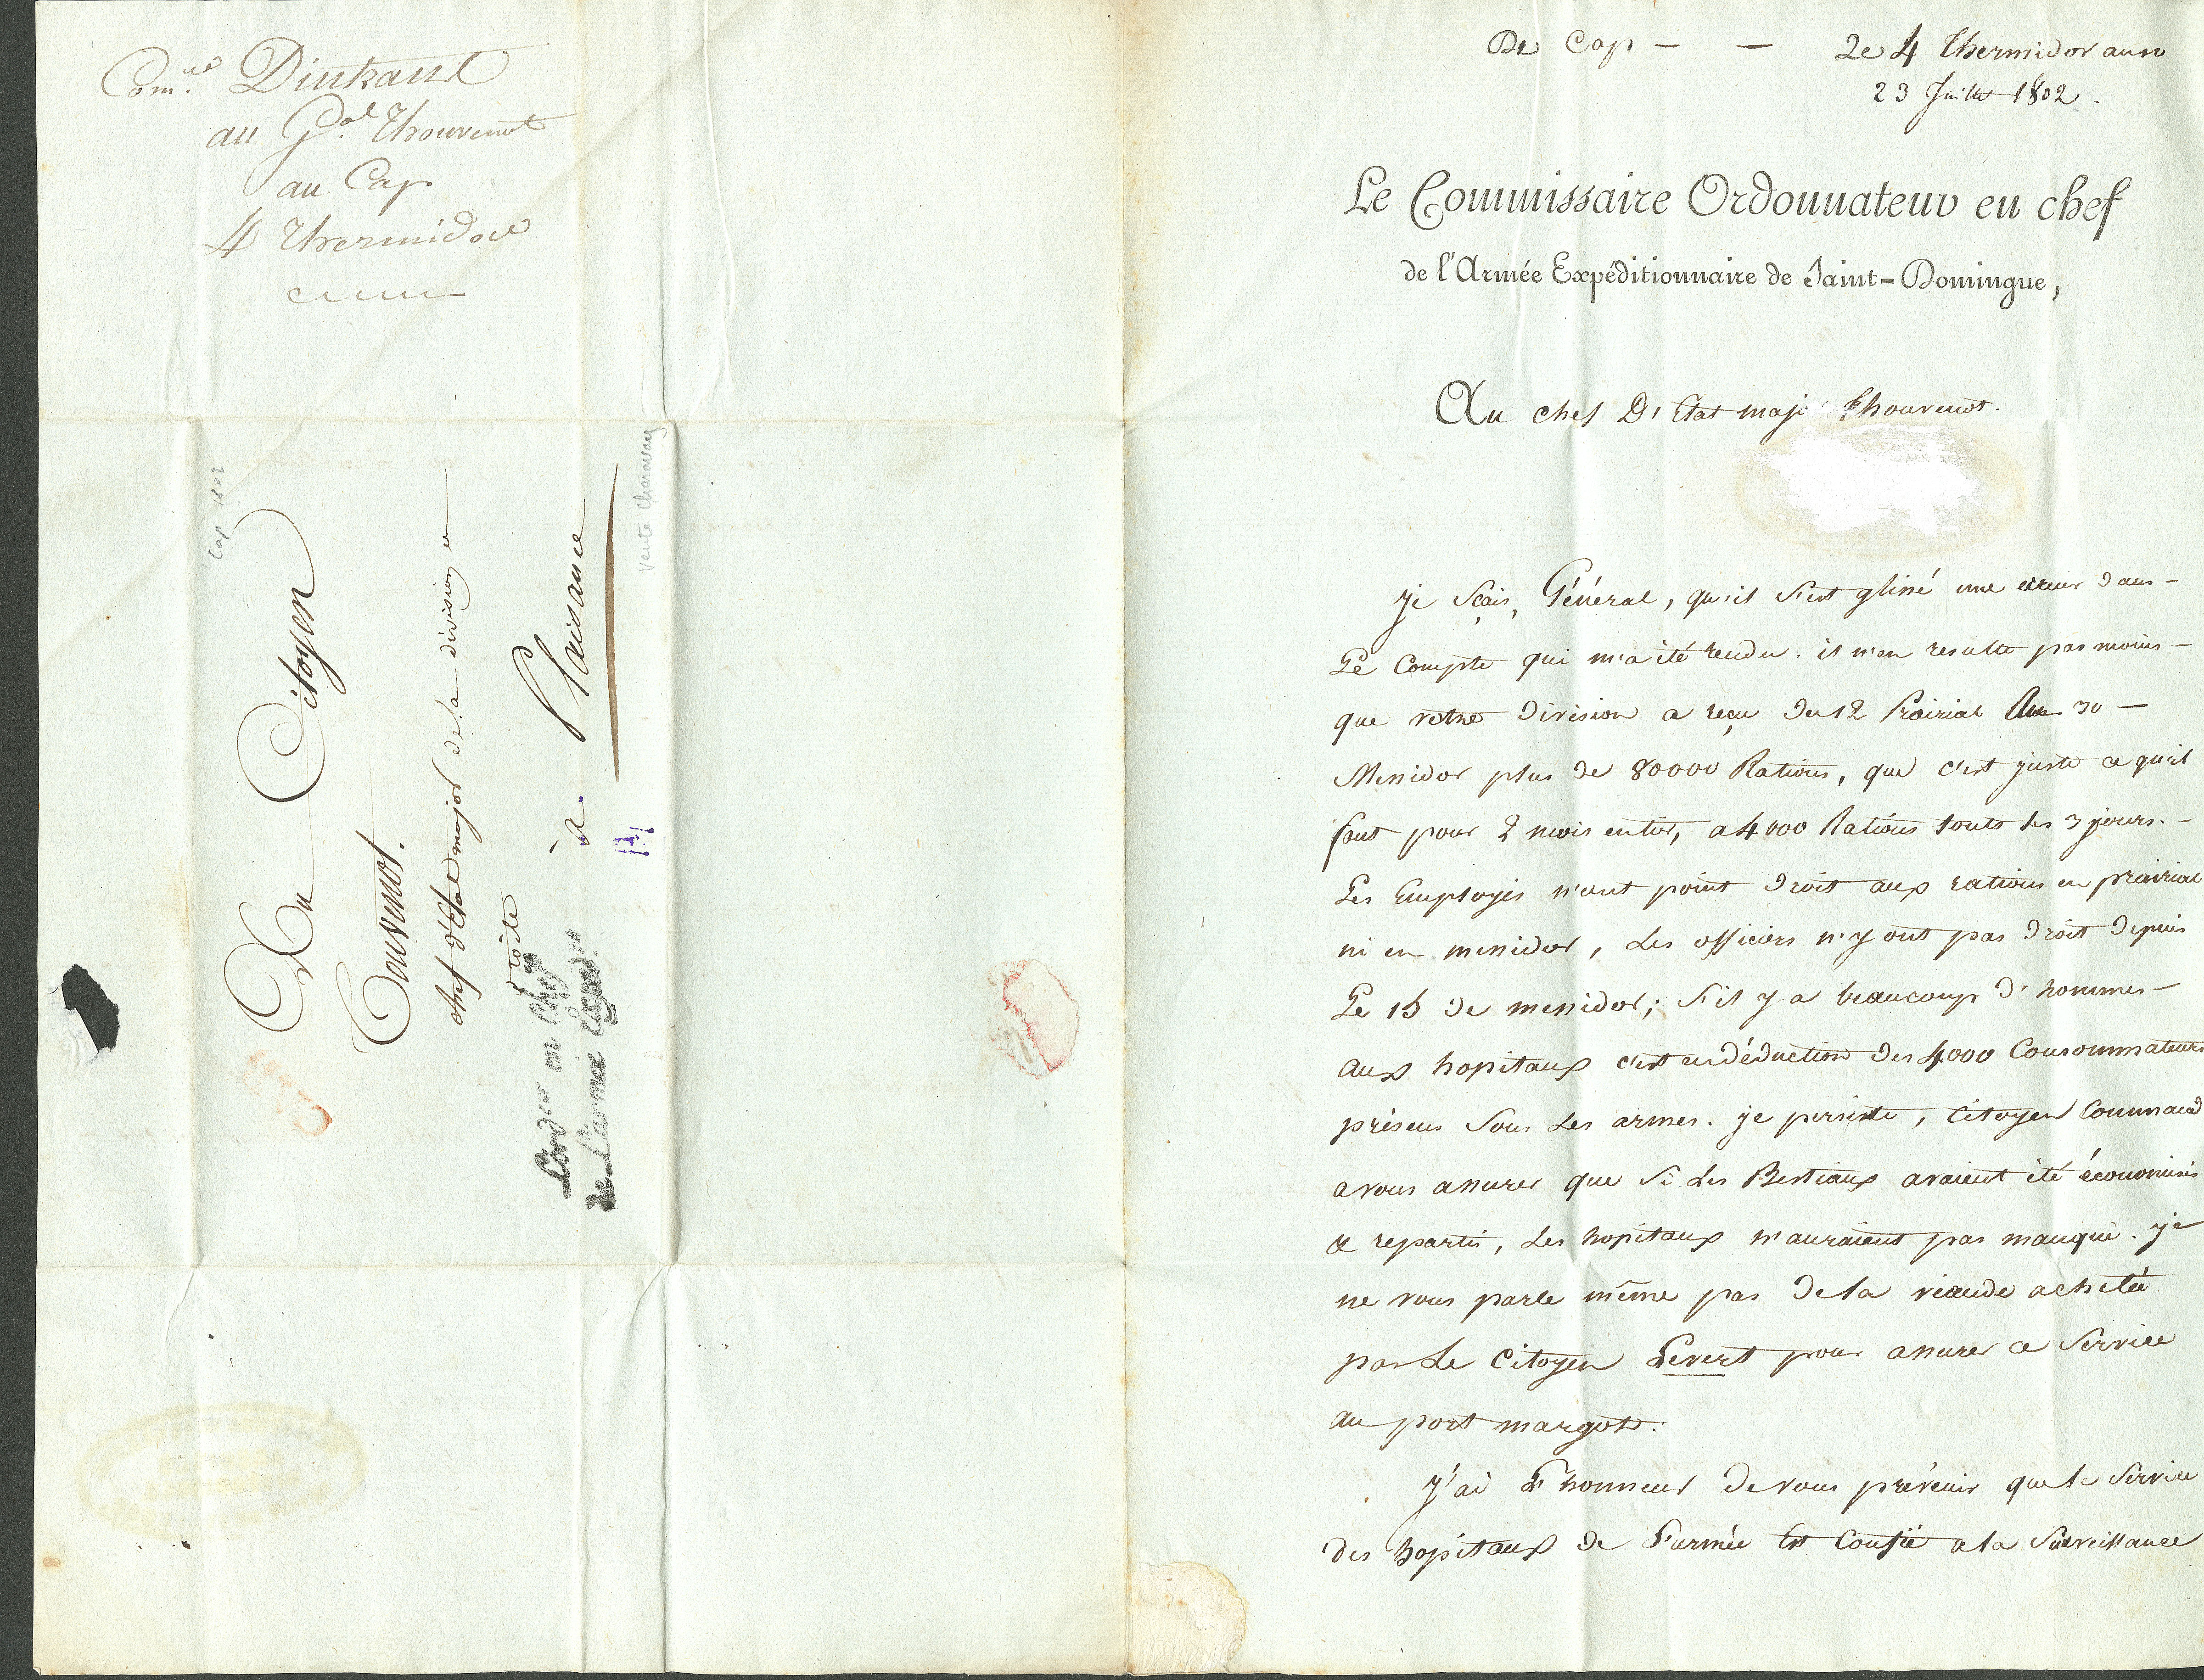 Com.re
au G.al Thouvenot
au Cap
4 Thermidor
Cap 1802
Au Citoyen
Touvenot.
chef d'Etat major de la division
droite
à Plaisance
L'ord.eur en Chef
de L'armée Exped.re
vente Charavay
De Cap — — Le 4 Thermidor an 10
23 Juillet 1802.
Le Commissaire Ordonnateur en chef
de l'Armée Expéditionnaire de Saint-Domingue,
Au chef D'Etat maj.r Thouvenot.
Je Sçais, Général, qu'il s'est glissé une erreur dans —
Le Compte qui m'a été rendu. il n'en resulte pas moins —
que votre division a reçu du 12 Prairial Au 30 —
Messidor plus de 80000 Rations, que c'est juste ce qu'il
faut pour 2 mois entier, a 4000 Rations touts les 3 jours. —
Les Employés n'ont point droit aux rations en prairial
ni en messidor, Les officiers n'y ont pas droit depuis
Le 15 de messidor; s'il y a beaucoup d'hommes —
aux hopitaux c'est en déduction des 4000 Consommateurs
présens Sous Les armes. je persiste, Citoyen Command
a vous assurer que Si Les Bestiaux avaient été économisés
& repartis, Les hopitaux n'auraient pas manqué. je
ne vous parle même pas de la viande achetée
par Le Citoyen Levert pour assurer ce Service
au port margot.
J'ai L'honneur de vous prévenir que le Service
des hopitaux de L'armée Est Confié a la Surveillance